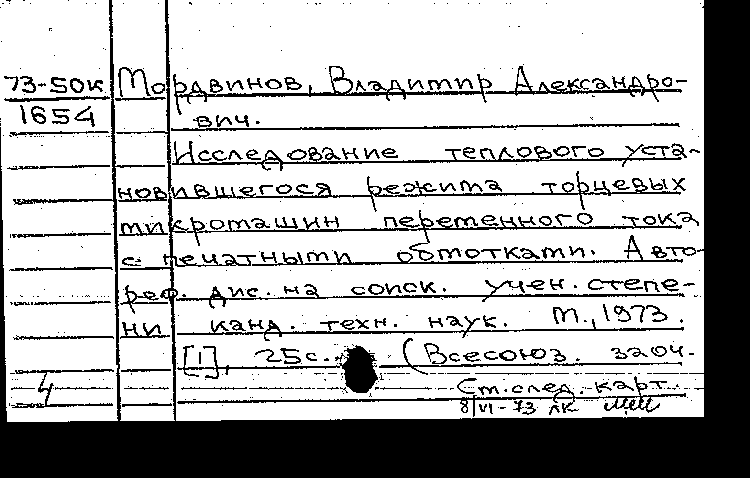 73-50к Мордвинов, Владимир Александро-
1654 вич.
Исследование теплового уста-
новившегося режима торцевых
микромашин переменного тока
с печатными обмотками. Авто-
реф. дис. на соиск. учен. степе-
ни канд. техн. наук. М., 1973.
[1], 25с. (Всесоюз. заоч.
4 См. след. карт.
8/VI-73 лк